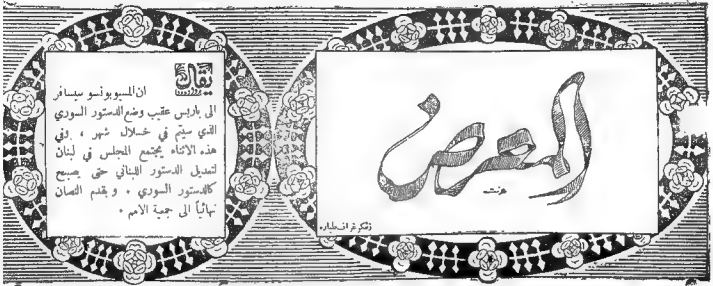 المعرض
يقال
ان المسيو بونسو سيسافر
الى باريس عقيب وضع الدستور السوري
الذي سيتم في خلال شهر ، وفي
هذه الاثناء يجتمع المجلس في لبنان
لتعديل الدستور اللبناني حتى يصبح
كالدستور السوري . ويقدم النصان
نهائياً الى جمعية الامم .